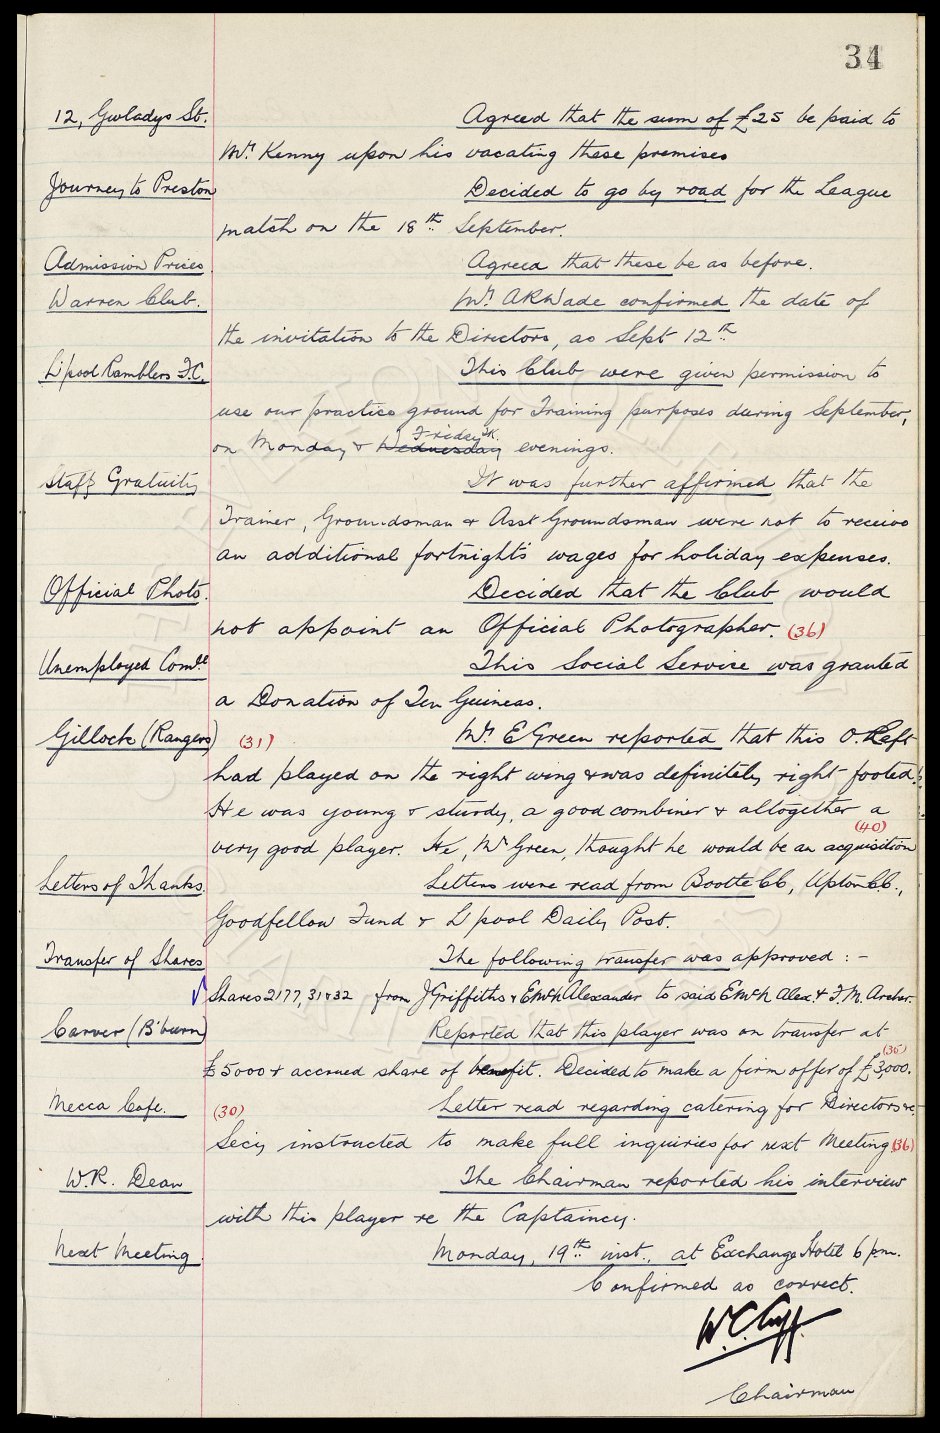 34
12, Gwladys St. Agreed that the sum of £25 be paid to
Mr. Kenny upon his vacating these premises
Journey to Preston Decided to go by road for the League
match on the 18th September.
Admission Prices. Agreed that these be as before.
Warren Club. Mr. A R Wade confirmed the date of
the invitation to the Directors, as Sept 12th
L'pool Ramblers F.C. This Club were given permission to
use our practice ground for Training purposes during September,
on Monday & Wednesday Friday evenings.
Staff Gratuity It was further affirmed that the
Trainer, Groundsman & Asst Groundsman were not to receive
an additional fortnight's wages for holiday expenses.
Official Photo. Decided that the Club would
not appoint an Official Photographer. (36)
Unemployed Comtee This Social Service was granted
a Donation of Ten Guineas.
Gillock (Rangers) (31) Mr. E Green reported that this O. Left
had played on the right wing & was definitely right-footed.
He was young & sturdy, a good combiner & altogether a
very good player. He, Mr Green, thought he would be an acquisition (40)
Letters of Thanks. Letters were read from Bootle CC, Upton CC.,
Goodfellow Fund & L'pool Daily Post.
Transfer of Shares The following transfer was approved :-
Shares 2177, 31 & 32 from J Griffiths & E McN Alexander to said E McN Alex. & F. M. Archer.
Carver (B'burn) Reported that this player was on transfer at
£5000 & accrued share of benefit. Decided to make a firm offer of £3,000. (35)
Mecca Cafe. (30) Letter read regarding catering for Directors &c,
Secy instructed to make full inquiries for next Meeting (36)
W.R. Dean The Chairman reported his interview
with this player re the Captaincy.
Next Meeting. Monday, 19th inst., at Exchange Hotel 6 p.m.
Confirmed as correct.
W.C. Cuff.
Chairman